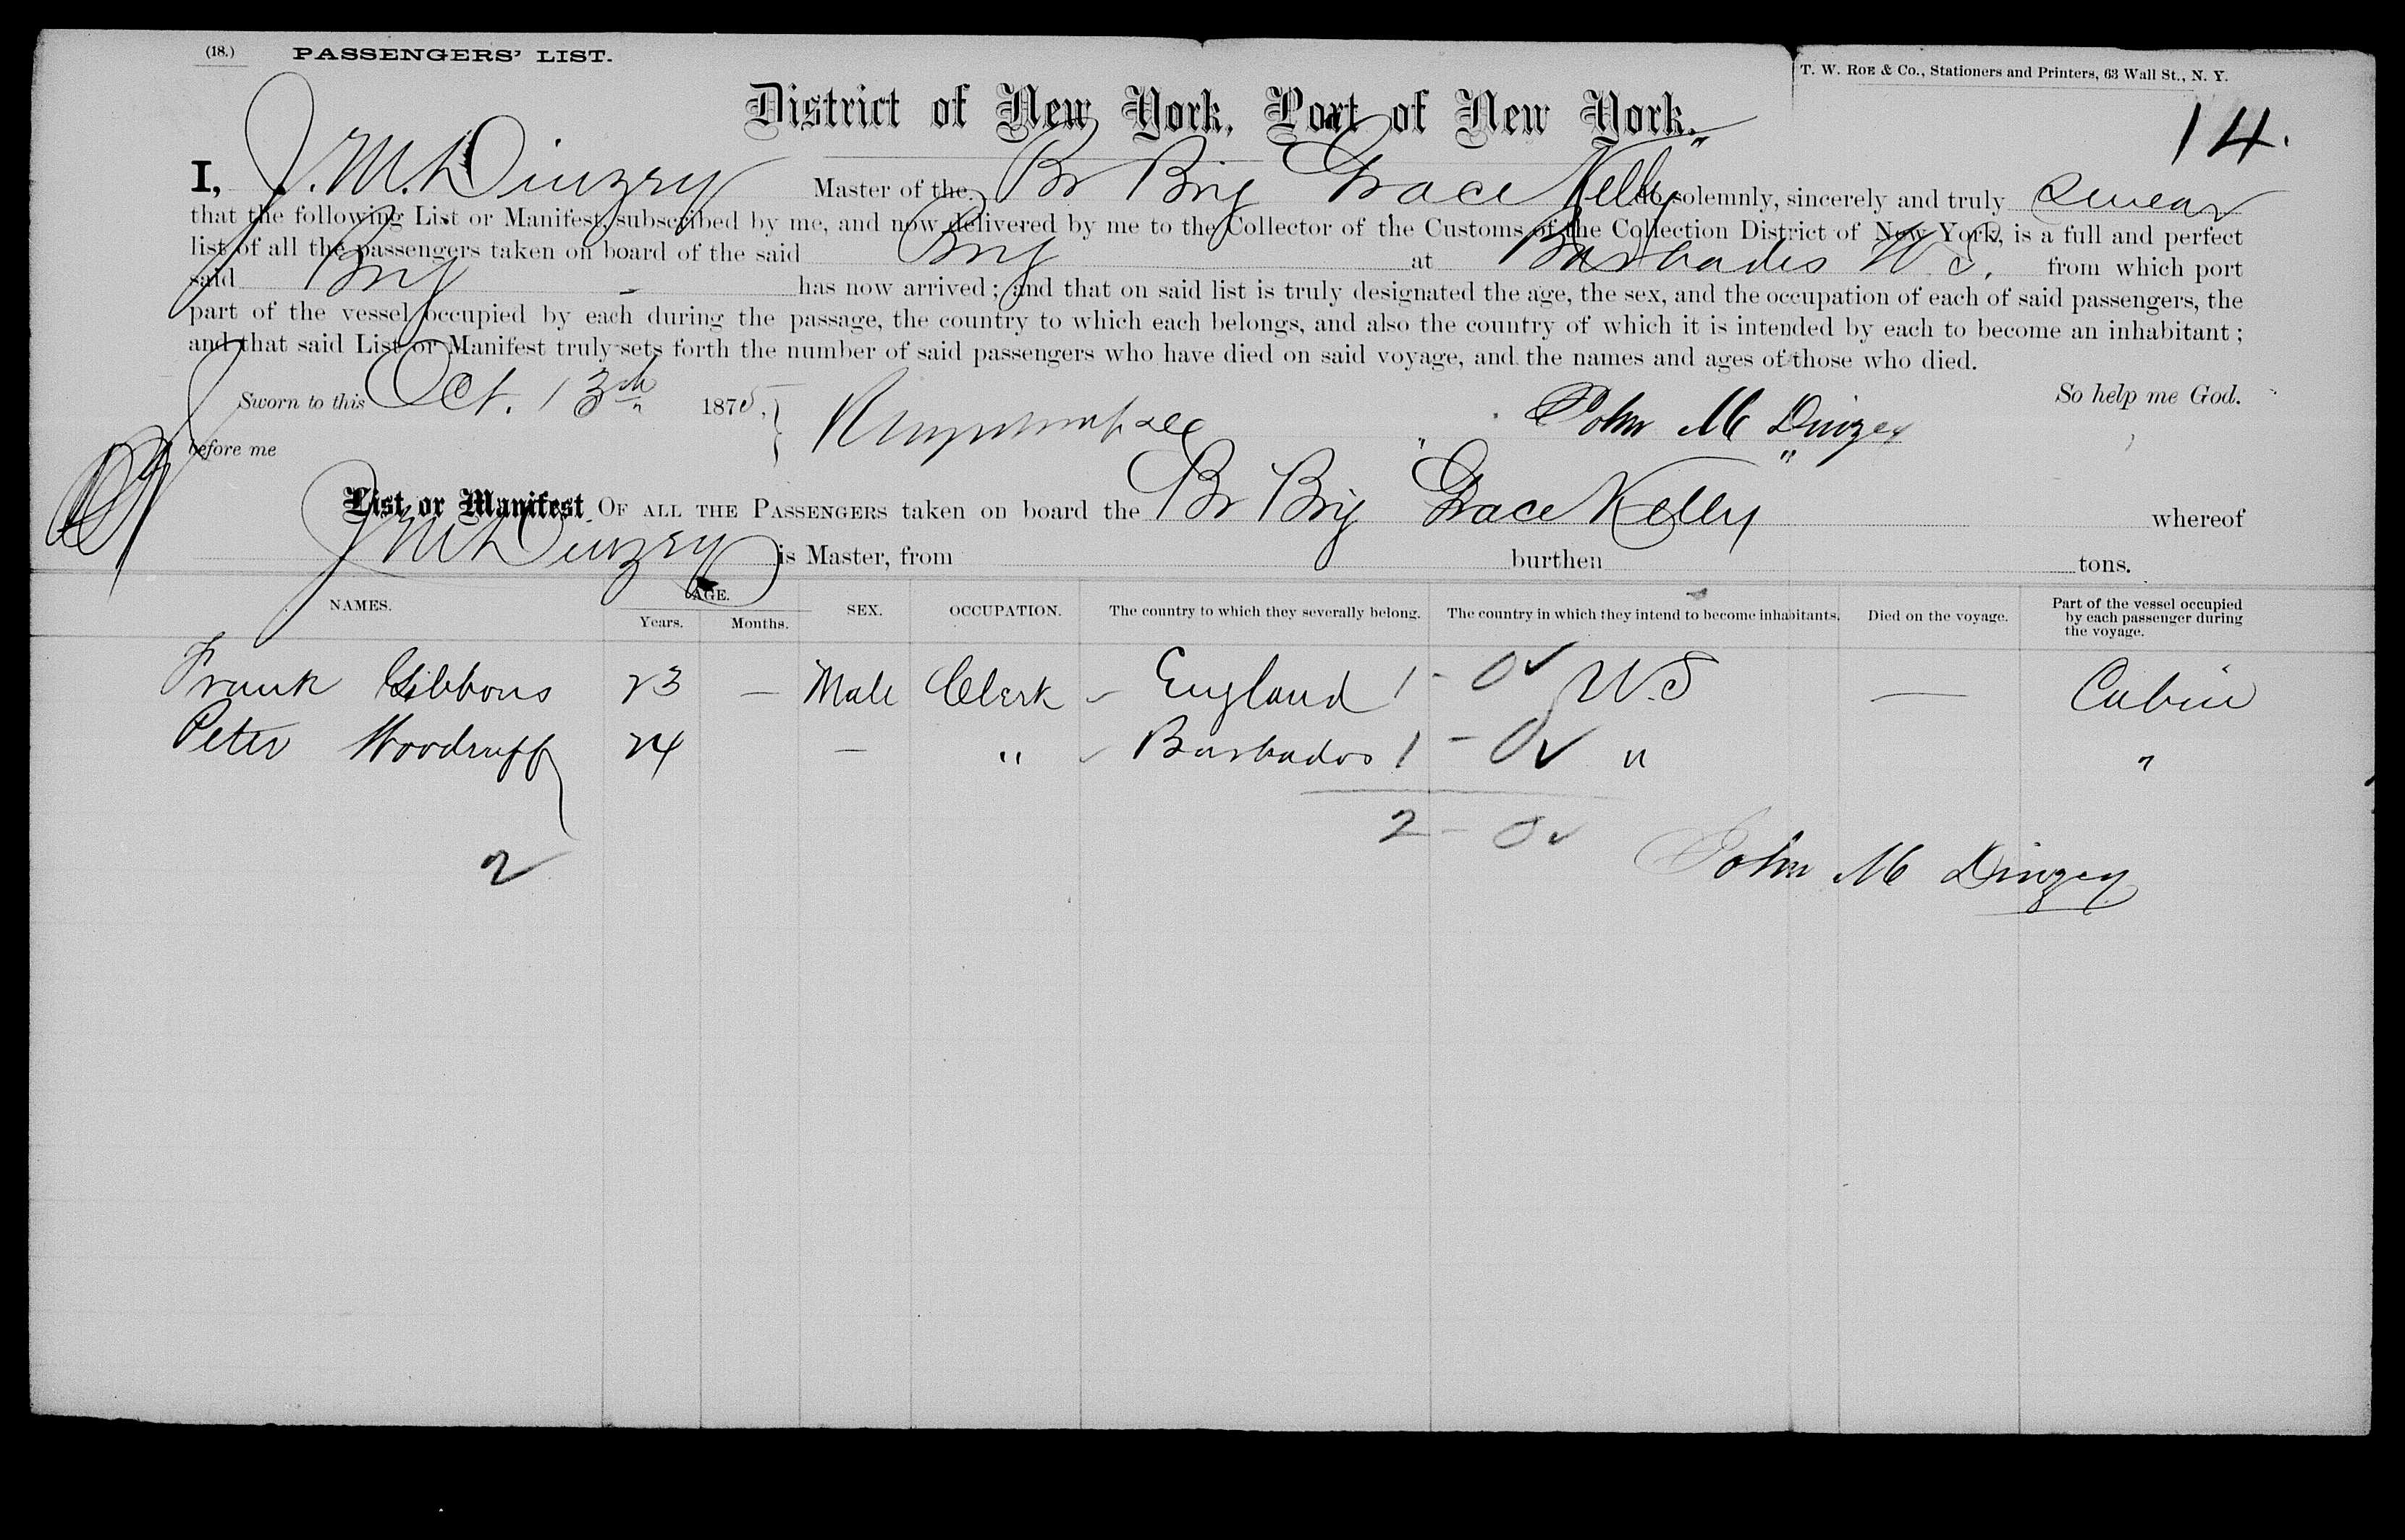 (18.) PASSENGERS' LIST.
T. W. ROE & Co., Stationers and Printers, 63 Wall St., N. Y.
District of New York, Port of New York.
14.
I, J. M. Dinzey Master of the Br Brig Grace Kelly do solemnly, sincerely and truly swear
that the following List or Manifest, subscribed by me, and now delivered by me to the Collector of the Customs of the Collection District of New York, is a full and perfect
list of all the passengers taken on board of the said Brig at Barbados W. I. from which port
said Brig has now arrived; and that on said list is truly designated the age, the sex, and the occupation of each of said passengers, the
part of the vessel occupied by each during the passage, the country to which each belongs, and also the country of which it is intended by each to become an inhabitant;
and that said List or Manifest truly sets forth the number of said passengers who have died on said voyage, and the names and ages of those who died.
So help me God.
Sworn to this Oct. 13th 1875, } John M Dinzey
before me
List or Manifest OF ALL THE PASSENGERS taken on board the Br Brig Grace Kelly whereof
J M Dinzey is Master, from burthen tons.
NAMES. AGE. Years. Months. SEX. OCCUPATION. The country to which they severally belong. The country in which they intend to become inhabitants. Died on the voyage. Part of the vessel occupied by each passenger during the voyage.
Frank Gibbons 23 — Male Clerk – England 1 - 0 ✓ U.S — Cabin
Peter Woodruff 24 — " ✓ Barbados 1 - 0 ✓ " "
2 - 0 ✓
2
John M Dinzey